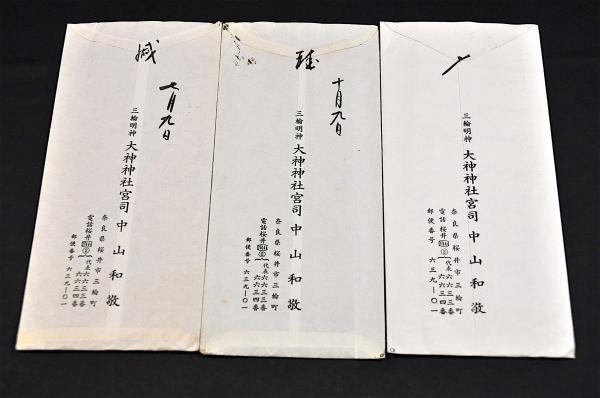 緘
七月九日
三輪明神 大神神社宮司 中山和敬
奈良県桜井市三輪町
電話桜井 (代表六六三三番
六六三四番
郵便番号 六三九ー〇一
緘
十月九日
三輪明神 大神神社宮司 中山和敬
奈良県桜井市三輪町
電話桜井 (代表六六三三番
六六三四番
郵便番号 六三九ー〇一
三輪明神 大神神社宮司 中山和敬
奈良県桜井市三輪町
電話桜井 (代表六六三三番
六六三四番
郵便番号 六三九ー〇一